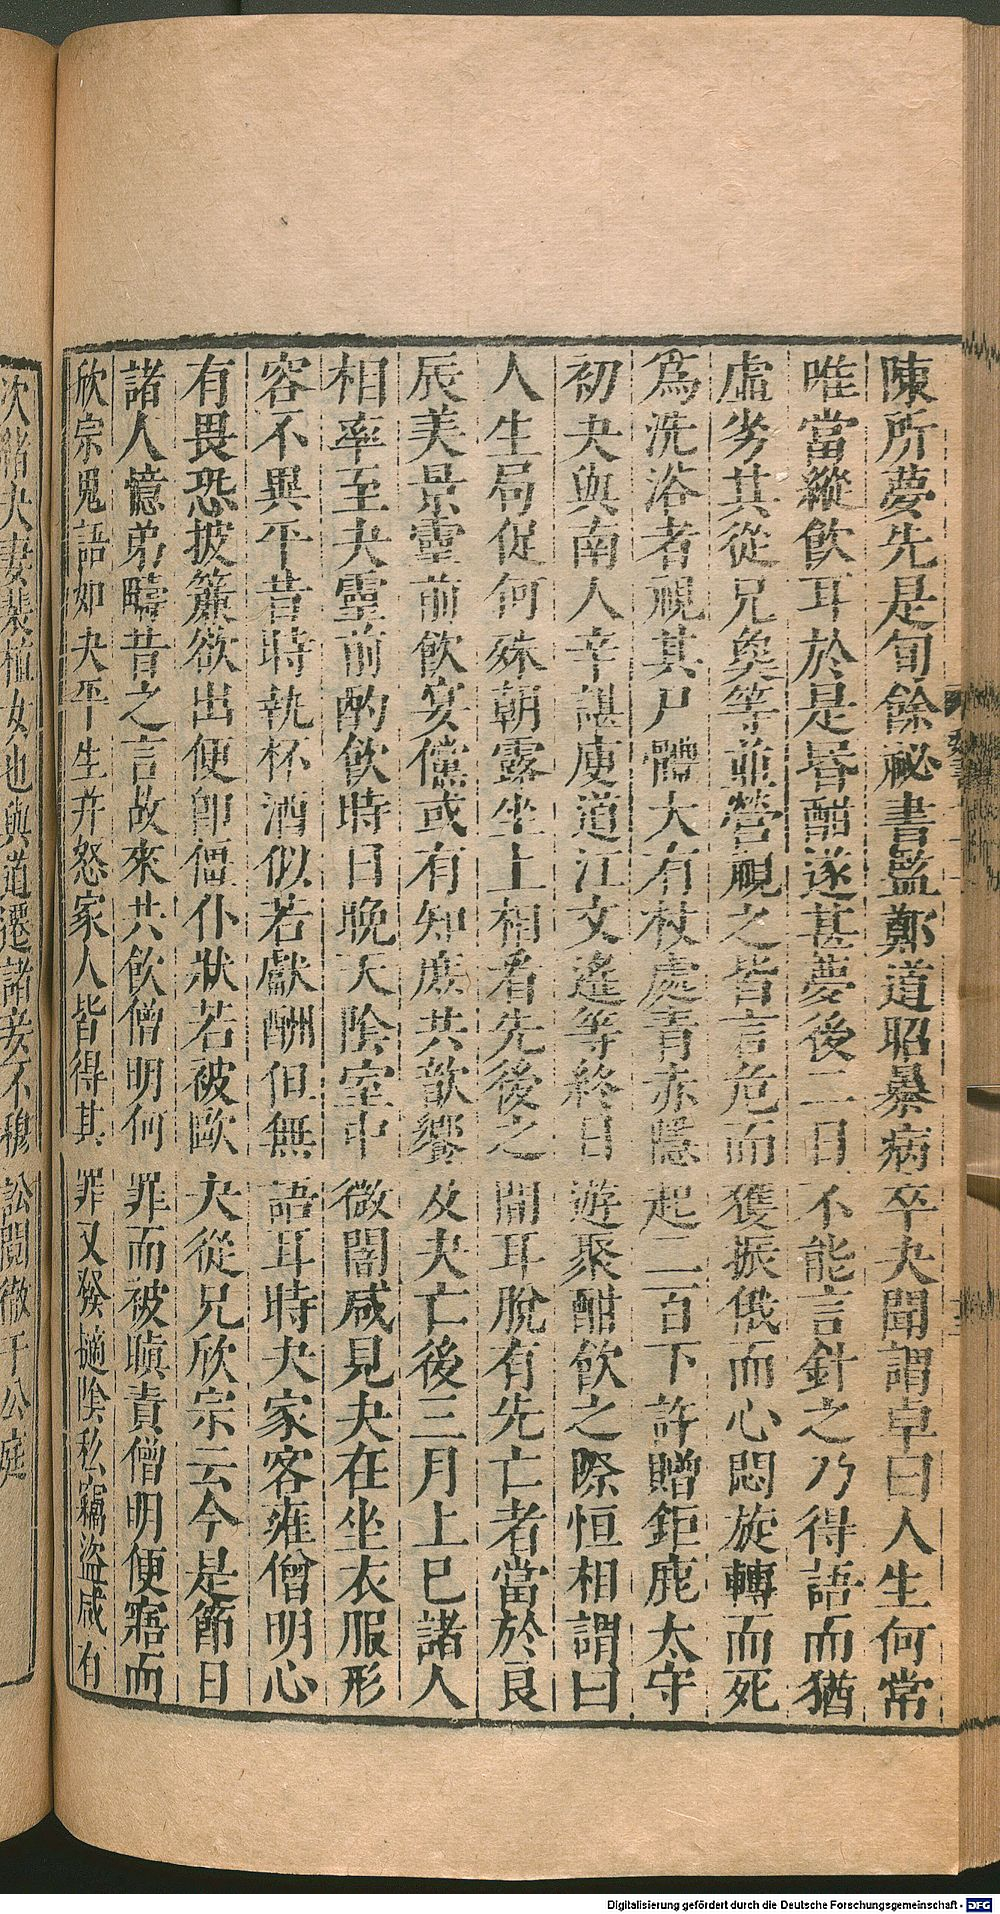 陳所夢先是旬餘祕書監鄭道昭暴病卒夬聞謂卓曰人生何常
唯當縱飲耳於是昬酣遂甚夢後二日不能言針之乃得語而猶
虛劣其從兄奐等並營視之皆言危而獲振俄而心悶旋轉而死
爲洗浴者視其尸體大有杖處青赤隱起二百下許贈鉅鹿太守
初夬與南人辛諶庾道江文遙等終日遊聚酣飲之際恒相謂曰
人生局促何殊朝露坐上相看先後之間耳脫有先亡者當於良
辰美景靈前飲宴儻或有知庶共歆饗及夬亡後三月上巳諸人
相率至夬靈前酌飲時日晚天陰室中微闇咸見夬在坐衣服形
容不異平昔時執杯酒似若獻酬但無語耳時夬家客雍僧明心
有畏恐披簾欲出便卽僵仆狀若被毆夬從兄欣宗云今是節日
諸人憶弟疇昔之言故來共飲僧明何罪而被瞋責僧明便寤而
欣宗鬼語如夬平生幷怒家人皆得其罪又發摘陰私竊盜咸有
次緒夬妻裴植女也與道遷諸妾不穆訟鬩徹于公庭
Digitalisierung gefördert durch die Deutsche Forschungsgemeinschaft - DFG